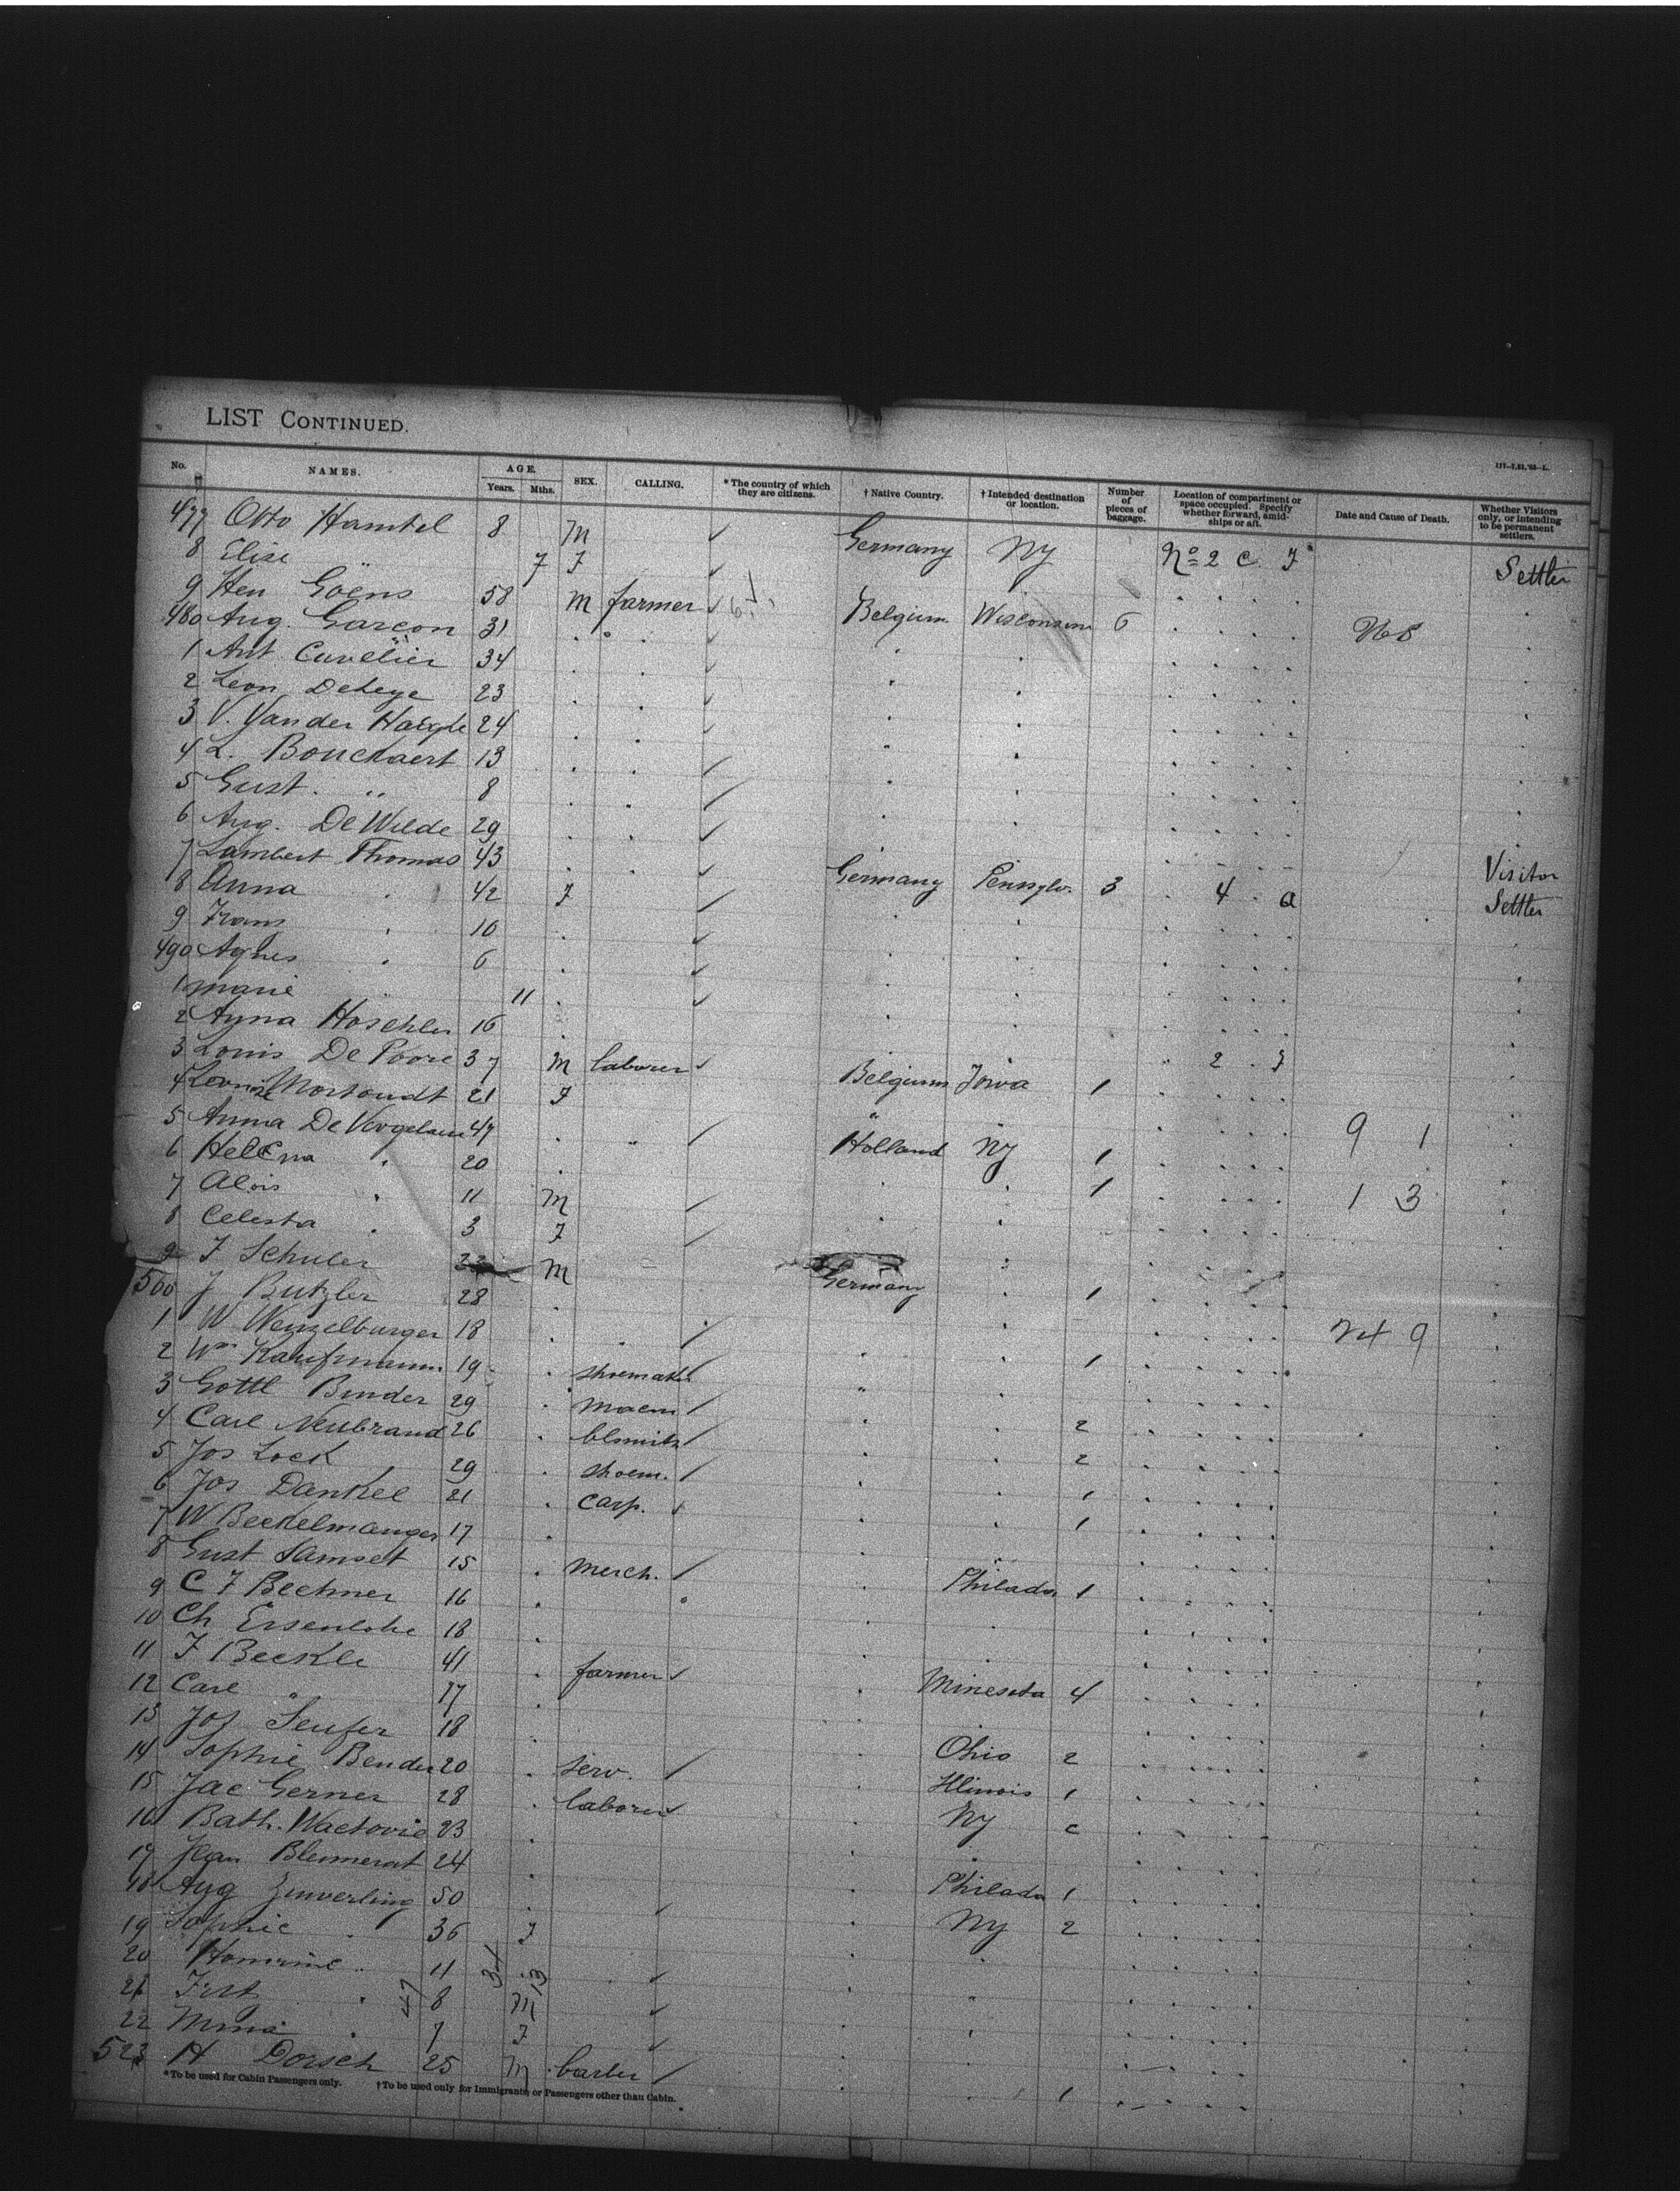 LIST CONTINUED.
117—7,31,'93—L.
No. NAMES. AGE. Years. Mths. SEX. CALLING. * The country of which they are citizens. † Native Country. † Intended destination or location. Number of pieces of baggage. Location of compartment or space occupied. Specify whether forward, amidships or aft. Date and Cause of Death. Whether Visitors only, or intending to be permanent settlers.
477 Otto Hamtel 8 M ✓ Germany NY No 2 C. F Settler
8 Elise 7 F ✓
9 Hen Goens 58 M farmer ✓ Belgium Wisconsin 6
480 Aug. Garcon 31 ✓
1 Ant Cuvelier 34 ✓
2 Leon Delege 23 ✓
3 V. Van der 24 ✓
4 L. Bouckaert 13 ✓
5 Gust. " 8 ✓
6 Aug. De Wilde 29 ✓
7 Lambert Thomas 43 ✓ Germany Pensylv. 3 4 a Visitor
8 Anna 42 F ✓ Settler
9 Frans 10 ✓
490 Agnes 6 ✓
1 Marie 11 ✓
2 Anna Hoschler 16
3 Louis De Poore 37 M laborer ✓ Belgium Iowa 1 2 F
4 21 F "
5 Anna 47 " ✓ Holland NY 1 9 1
6 Helena 20 1
7 Alois 11 M ✓ 1 3
8 Celesta 3 F ✓
9 F Schuler M Germany
500 J Butzler 28 1
1 W Wenzelburger 18 ✓ 24 9
2 Wm Kaufmann 19 shoemaker 1
3 Gottl Binder 29 ✓ "
4 Carl Neubrand 26 blsmith ✓ 2
5 Jos Lock 29 shoem. ✓ 2
6 Jos Dankel 21 carp. ✓ 1
7 W 17 1
8 Gust Samset 15 merch. ✓ Philada 1
9 C F Bechner 16
10 Ch Eisenlohe 18
11 F Beckle 41 farmer ✓ Minesota 4
12 Carl " 17
13 Jos Seufer 18 Ohio 2
14 Sophie Bender 20 serv. ✓ Illinois 1
15 Jac Gerner 28 laborer ✓ NY
16 Bath. Wactovic 23
17 Jean Blemerat 24 Philada 1
18 Aug Zinverling 50 ✓ NY 2
19 Sophie 36 F
20 11 ✓
21 8 M ✓
22 Mina 7 F ✓
523 H Dorsch 25 M barber ✓ 1
47 34 13
* To be used for Cabin Passengers only. † To be used only for Immigrants or Passengers other than Cabin.